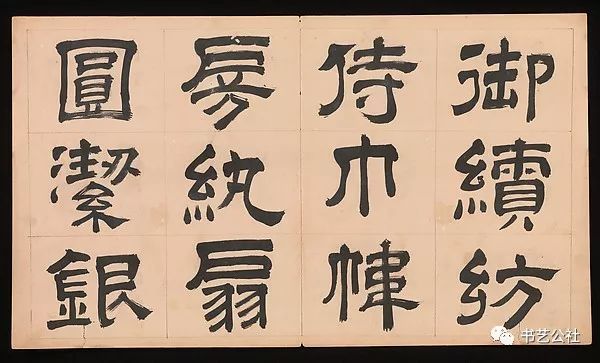 御績紡
侍巾幃
房紈扇
圓潔銀
书艺公社